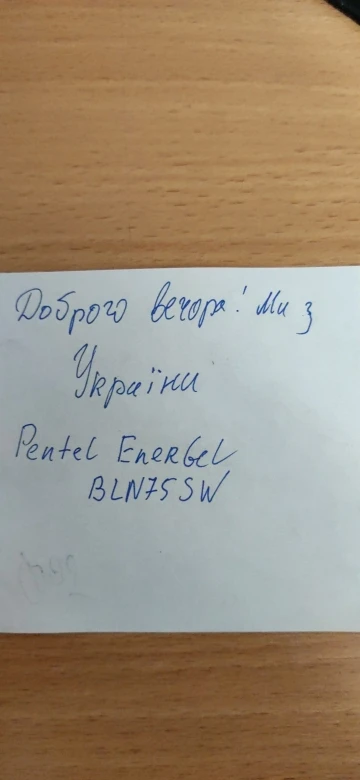 Доброго вечора! Ми з
України
Pentel EnerGel
BLN75SW